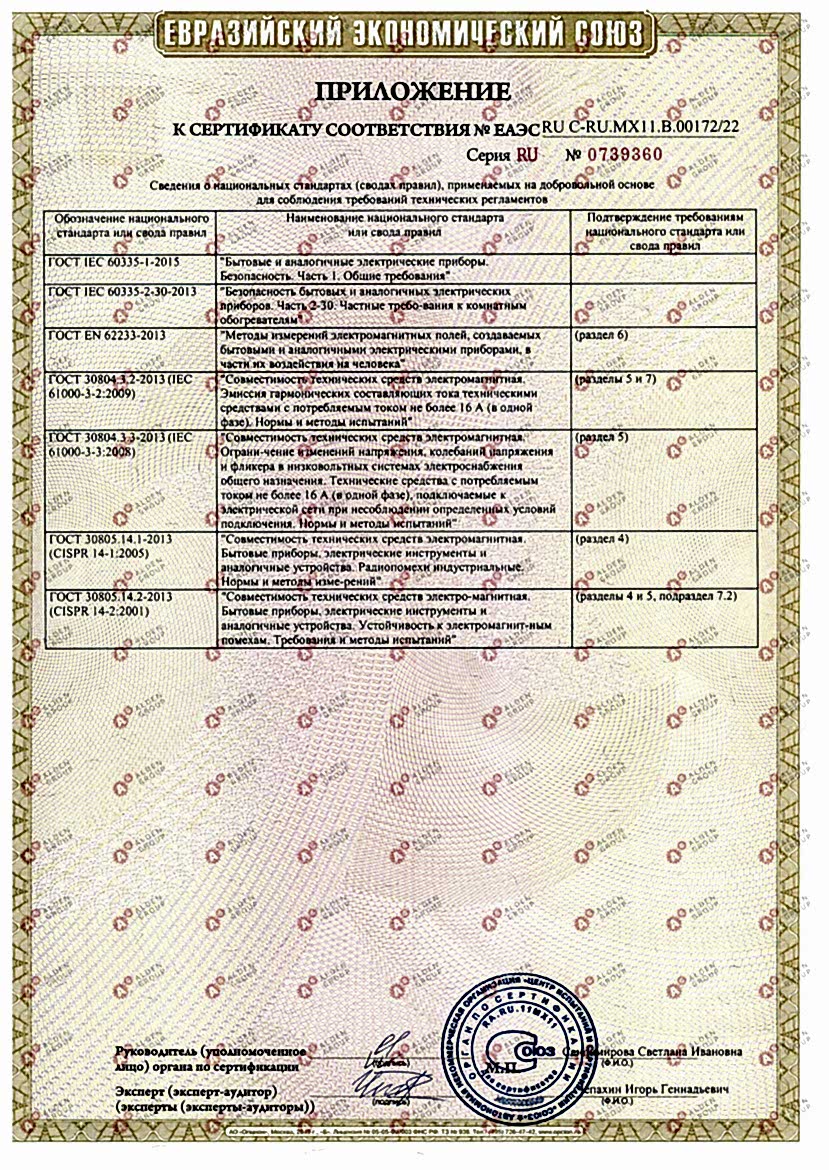 ЕВРАЗИЙСКИЙ ЭКОНОМИЧЕСКИЙ СОЮЗ
ПРИЛОЖЕНИЕ
К СЕРТИФИКАТУ СООТВЕТСТВИЯ № ЕАЭС RU C-RU.MX11.B.00172/22
Серия RU № 0739360
Сведения о национальных стандартах (сводах правил), применяемых на добровольной основе
для соблюдения требований технических регламентов
Обозначение национального
стандарта или свода правил
Наименование национального стандарта
или свода правил
Подтверждение требованиям
национального стандарта или
свода правил
ГОСТ IEC 60335-1-2015
"Бытовые и аналогичные электрические приборы.
Безопасность. Часть 1. Общие требования"
ГОСТ IEC 60335-2-30-2013
"Безопасность бытовых и аналогичных электрических
приборов. Часть 2-30. Частные требо-вания к комнатным
обогревателям"
ГОСТ EN 62233-2013
"Методы измерений электромагнитных полей, создаваемых
бытовыми и аналогичными электрическими приборами, в
части их воздействия на человека"
(раздел 6)
ГОСТ 30804.3.2-2013 (IEC
61000-3-2:2009)
"Совместимость технических средств электромагнитная.
Эмиссия гармонических составляющих тока техническими
средствами с потребляемым током не более 16 А (в одной
фазе). Нормы и методы испытаний"
(разделы 5 и 7)
ГОСТ 30804.3.3-2013 (IEC
61000-3-3:2008)
"Совместимость технических средств электромагнитная.
Ограни-чение изменений напряжения, колебаний напряжения
и фликера в низковольтных системах электроснабжения
общего назначения. Технические средства с потребляемым
током не более 16 А (в одной фазе), подключаемые к
электрической сети при несоблюдении определенных условий
подключения. Нормы и методы испытаний"
(раздел 5)
ГОСТ 30805.14.1-2013
(CISPR 14-1:2005)
"Совместимость технических средств электромагнитная.
Бытовые приборы, электрические инструменты и
аналогичные устройства. Радиопомехи индустриальные.
Нормы и методы изме-рений"
(раздел 4)
ГОСТ 30805.14.2-2013
(CISPR 14-2:2001)
"Совместимость технических средств электро-магнитная.
Бытовые приборы, электрические инструменты и
аналогичные устройства. Устойчивость к электромагнит-ным
помехам. Требования и методы испытаний"
(разделы 4 и 5, подраздел 7.2)
Руководитель (уполномоченное
лицо) органа по сертификации
(подпись)
М.П.
Светлана Ивановна
(Ф.И.О.)
Эксперт (эксперт-аудитор)
(эксперты (эксперты-аудиторы))
(подпись)
Игорь Геннадьевич
(Ф.И.О.)
ОРГАН ПО СЕРТИФИКАЦИИ
RA.RU.11MX11
СОЮЗ
Для сертификатов
ALDEN GROUP